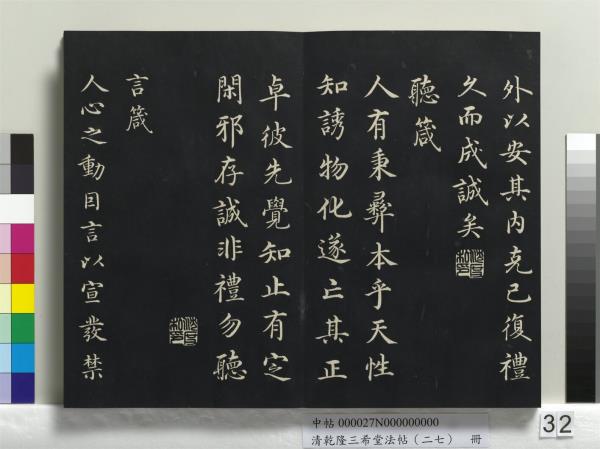 外以安其内克己復禮
久而成誠矣
聽箴
人有秉彝本乎天性
知誘物化遂亡其正
卓彼先覺知止有定
閑邪存誠非禮勿聽
言箴
人心之動因言以宣發禁
中帖 000027N000000000
清乾隆三希堂法帖（二七） 冊
32